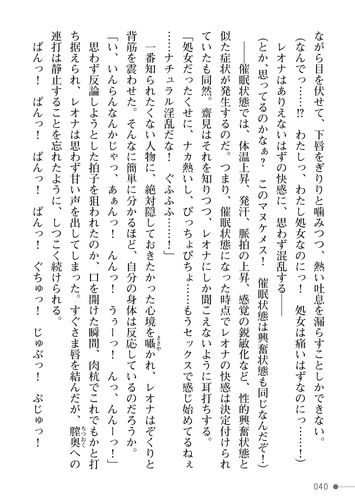 ながら目を伏せて、下唇をぎりりと噛みつつ、熱い吐息を漏らすことしかできない。
(なんで……!? わたしっ、わたし処女なのにっ! 処女は痛いはずなのにっ……!)
レオナはありえないはずの快感に、思わず混乱する――
(とか、思ってるのかなぁ? このマヌケメス! 催眠状態は興奮状態も同じなんだぞ!)
――催眠状態では、体温上昇、発汗、脈拍の上昇、感覚の鋭敏化など、性的興奮状態と
似た症状が発生するのだ。つまり、催眠状態になった時点でレオナの快感は決定付けられ
ていたも同然。齋見はそれを知りつつ、レオナにしか聞こえないように耳打ちする。
「処女だったくせに、ナカ熱いし、びっちょびちょ……もうセックスで感じ始めてるねぇ
……ナチュラル淫乱だな! ぐふふふ……!」
一番知られたくない人物に、絶対隠しておきたかった心境を囁かれ、レオナはぞくりと
背筋を震わせた。そんなに簡単に分かるほど、自分の身体は反応しているのだろうか。
「い、いんらんなんかじゃっ、あぁんっ! んんっ! うぅーっ! んっ、んんーっ!」
思わず反論しようとした拍子を狙われたのか、口を開けた瞬間、肉杭でこれでもかと打
ち据えられ、レオナは思わず甘い声を出してしまった。すぐさま唇を結んだが、膣奥への
連打は静止することを忘れたように、しつこく続けられる。
ぱんっ! ぱんっ! ぱんっ! ぱんっ! ぐちゅっ! じゅぶっ! ぷじゅっ!
040